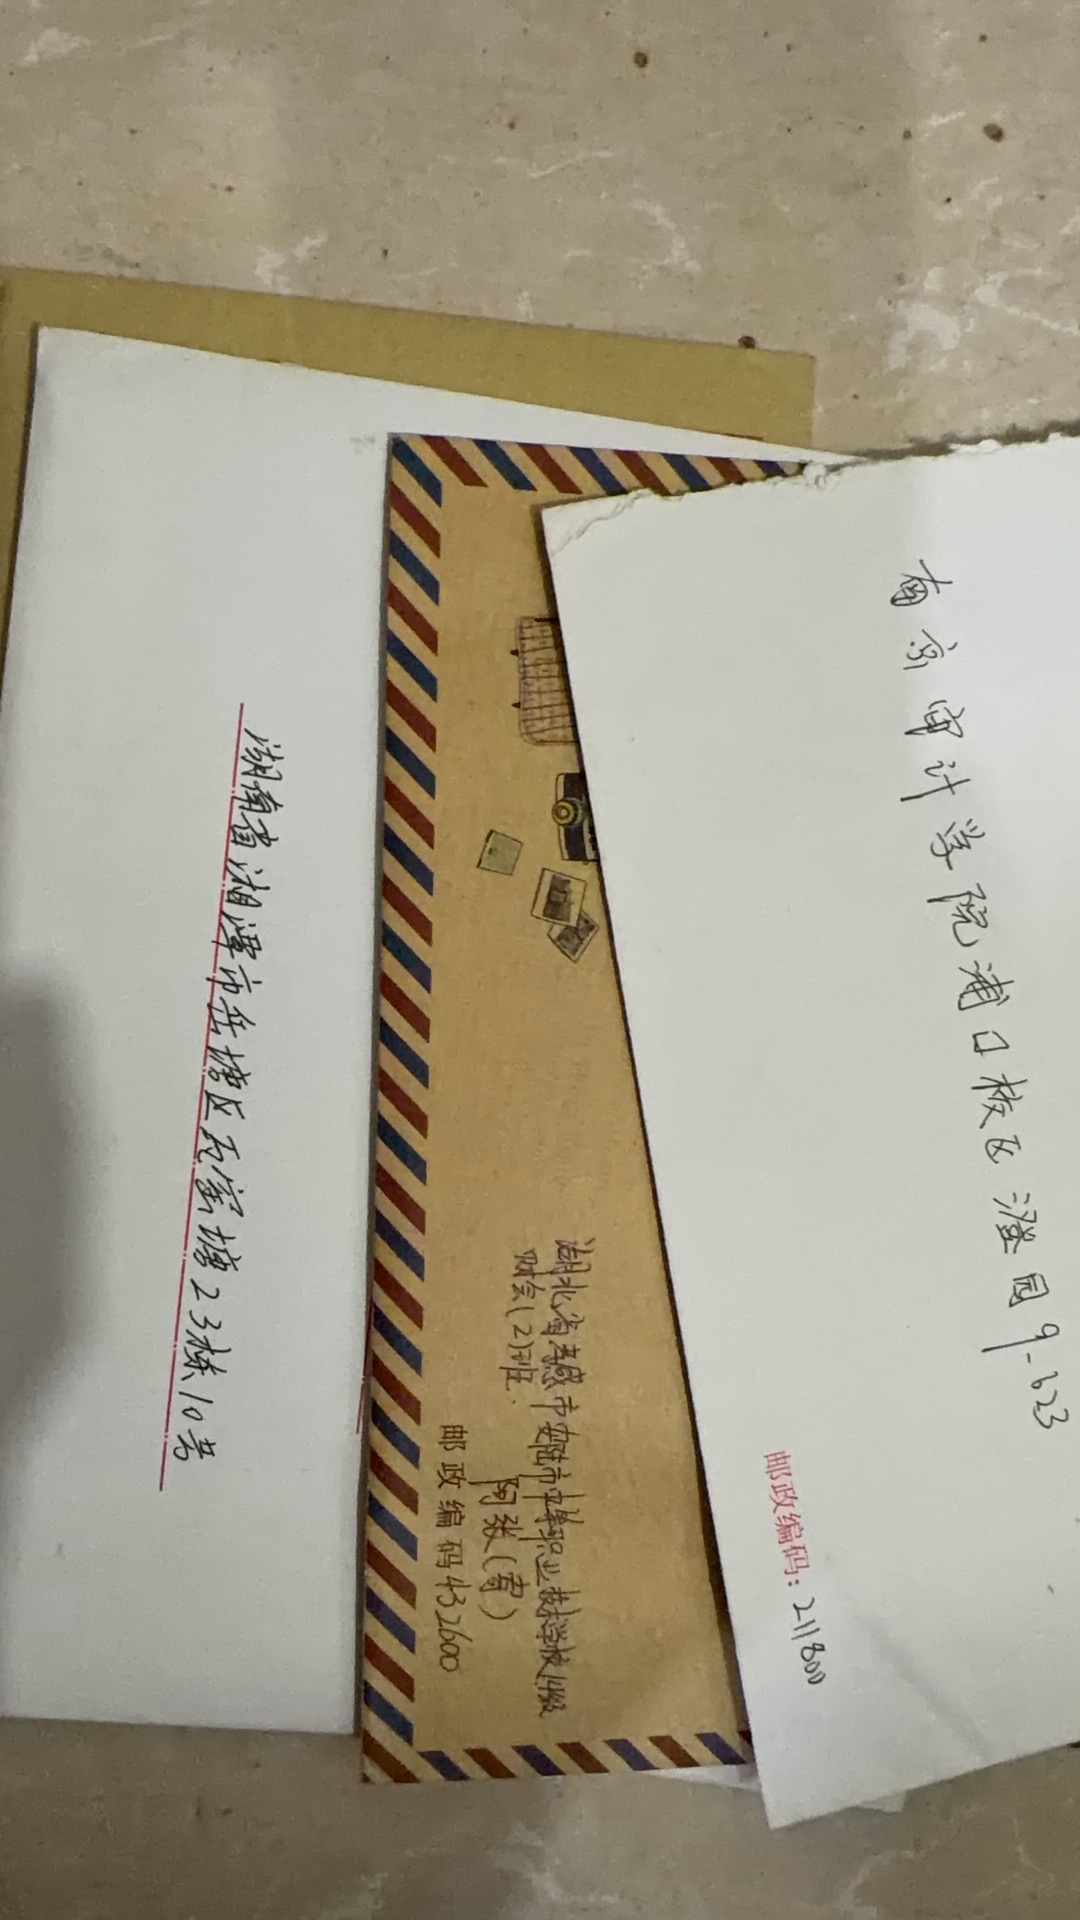 南京审计学院浦口校区澄园9-623
邮政编码：211800
湖北省孝感市安陆市中等职业技术学校14级
财会(2)班
阿张(寄)
邮政编码432600
湖南省湘潭市岳塘区瓦窑塘23栋10号